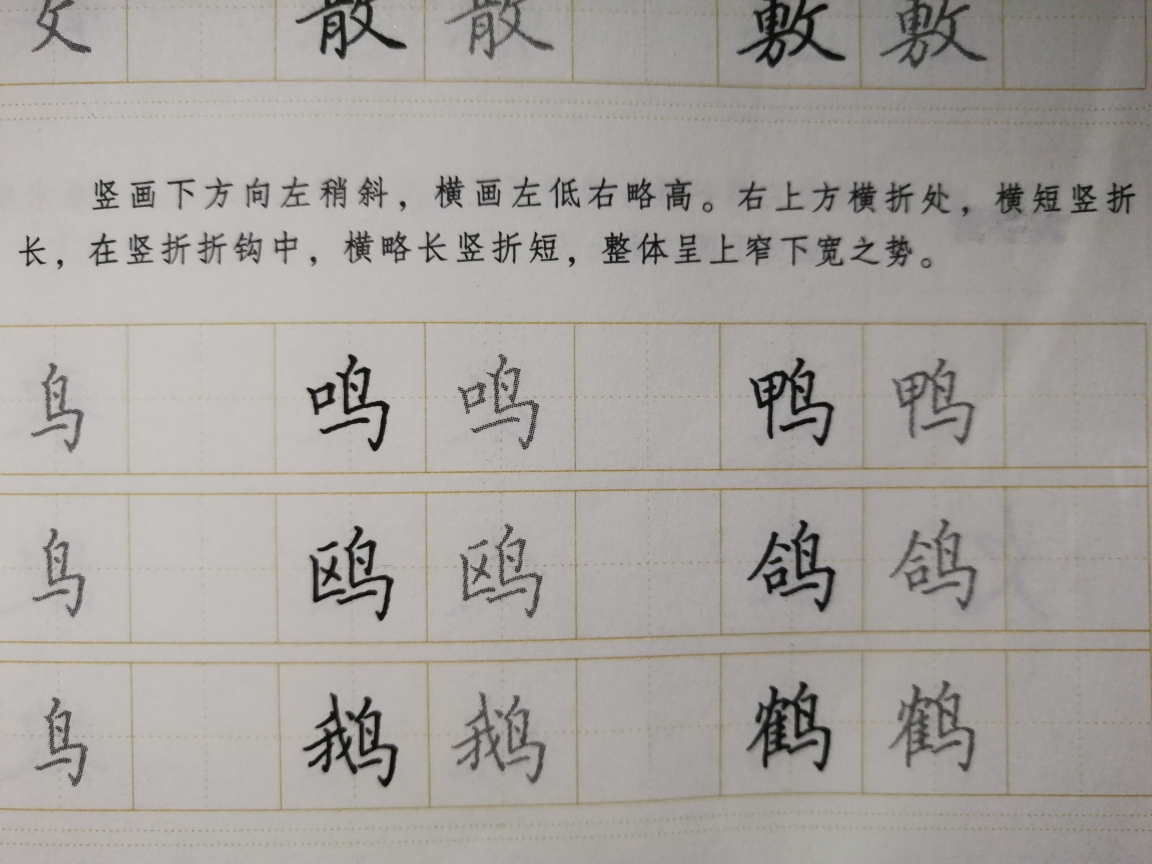 攵 散 散 敷 敷
竖画下方向左稍斜，横画左低右略高。右上方横折处，横短竖折
长，在竖折折钩中，横略长竖折短，整体呈上窄下宽之势。
鸟 鸣 鸣 鸭 鸭
鸟 鸥 鸥 鸽 鸽
鸟 鹅 鹅 鹤 鹤